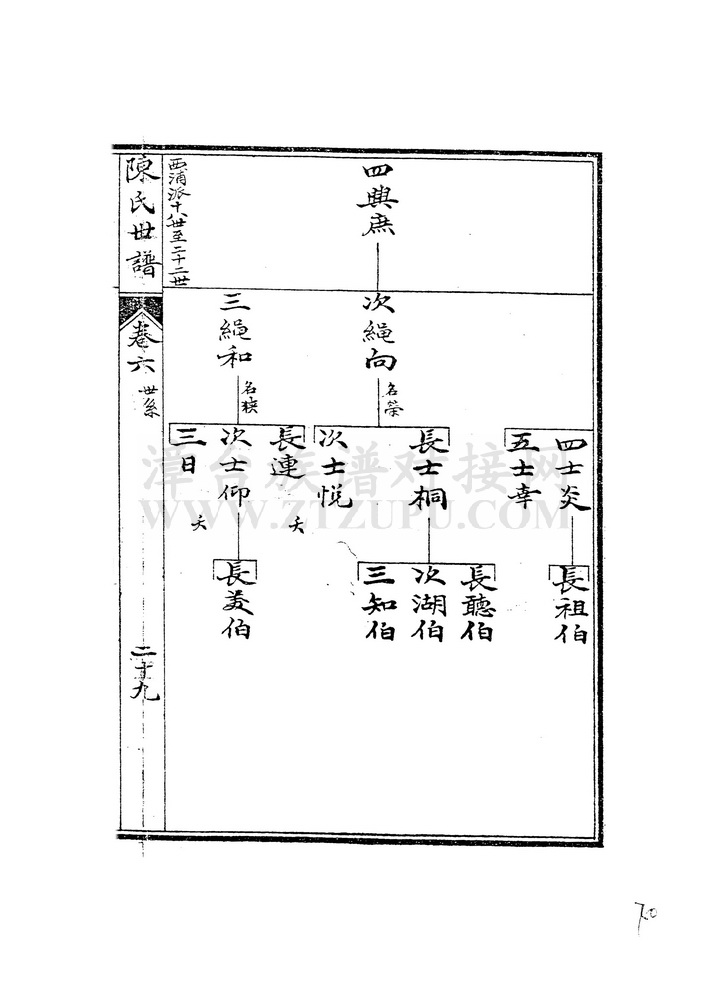 四興庶
次繩向
名榮
三繩和
名挾
四士炎
五士幸
長士桐
次士悅
長連
夭
次士仰
夭
三日
長祖伯
長聽伯
次湖伯
三知伯
長美伯
西浦派十八世至二十二世
陳氏世譜
卷六
世系
二十九
70
漳台族谱对接网
WWW.ZTZUPU.COM